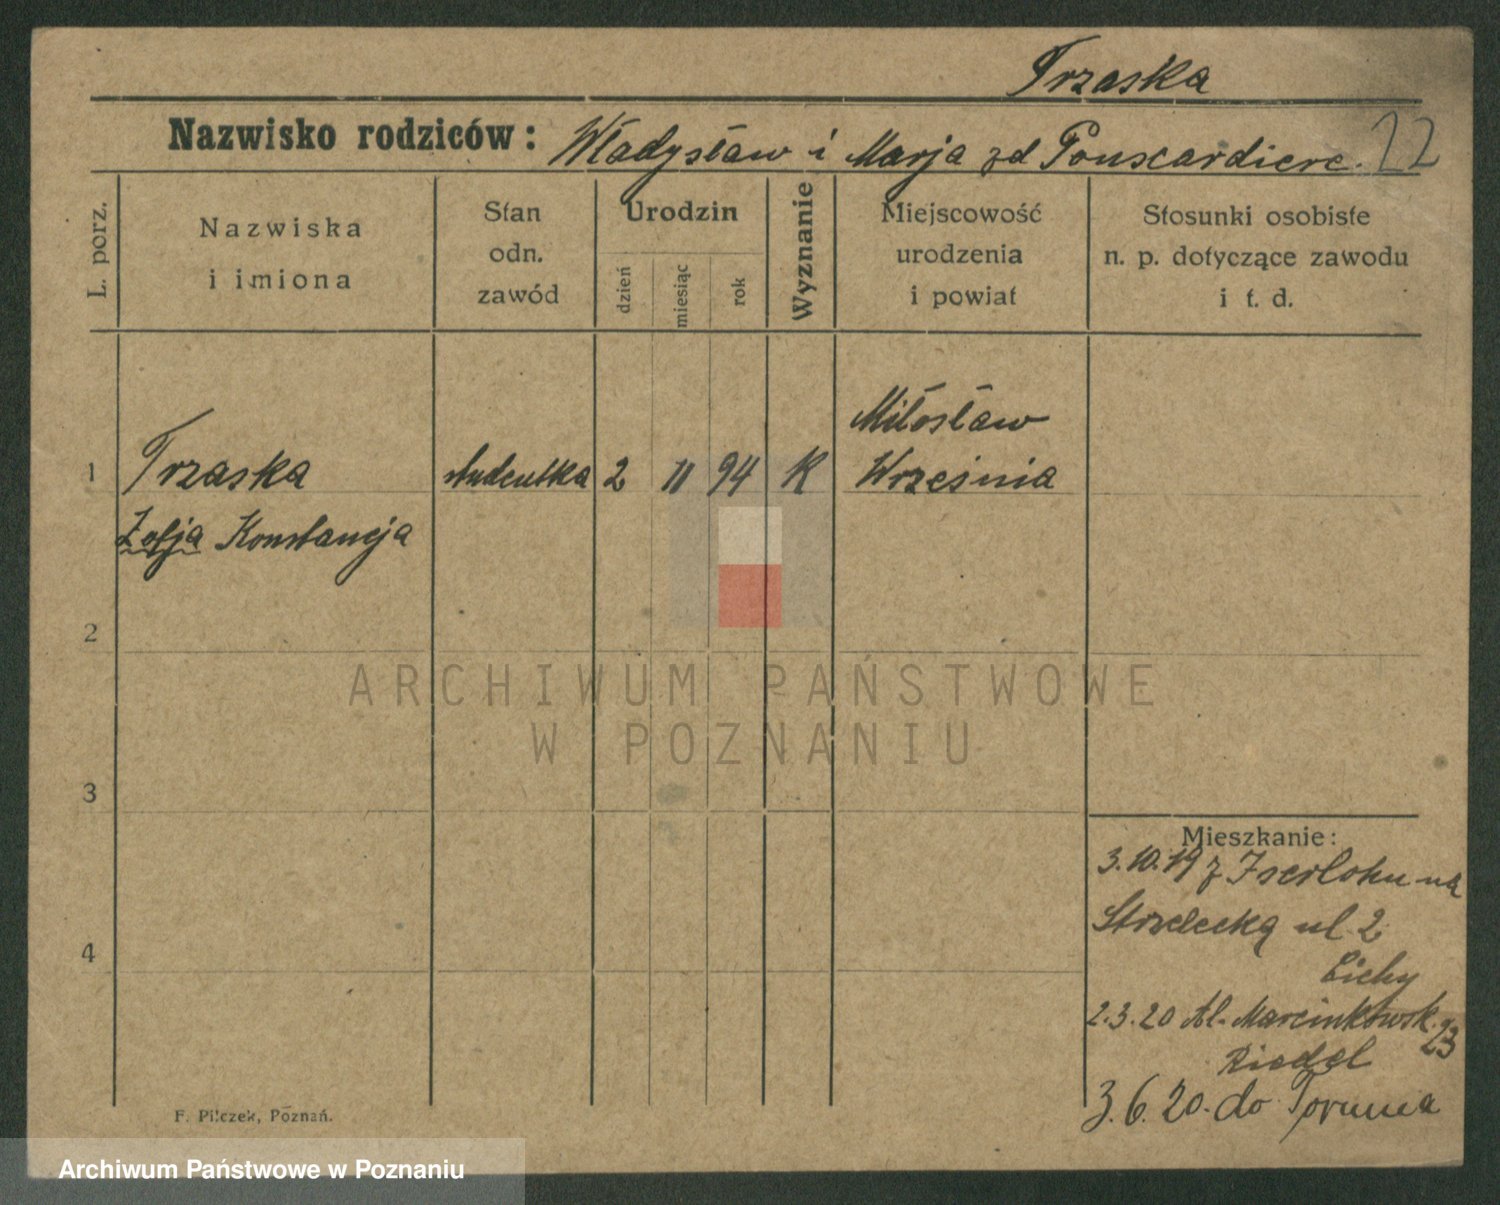 Trzaska
Nazwisko rodziców: Władysław i Marja zd Pouscardiere. 22
L. porz.
Nazwiska
i imiona
Stan
odn.
zawód
Urodzin
dzień
miesiąc
rok
Wyznanie
Miejscowość
urodzenia
i powiat
Stosunki osobiste
n. p. dotyczące zawodu
i t. d.
Miłosław
1 Trzaska studentka 2 11 94 K Września
Zofja Konstancja
2
ARCHIWUM PAŃSTWOWE
W POZNANIU
3
Mieszkanie:
3.10.19 z Iserlohu na
Strzelecką ul 2
Cichy
4
2.3.20 Al. Marcinkowsk. 23
Riedel
3.6.20. do Torunia
F. Pilczek, Poznań.
Archiwum Państwowe w Poznaniu